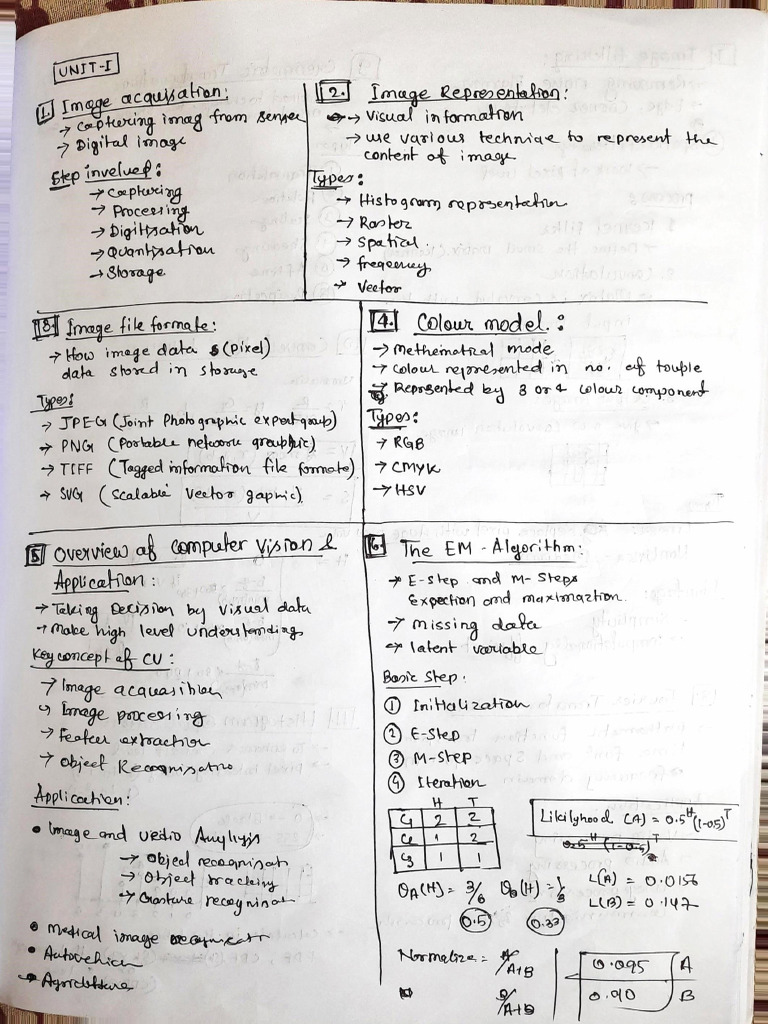 UNIT-I
1. Image acqussation:
→ Capturing imag from senser
→ Digital image
Step involved:
→ Capturing
→ Processing
→ Digitisation
→ Quantisation
→ Storage
2. Image Representation:
→ Visual information
→ use various techniqe to represent the
content of image
Types:
→ Histogram representation
→ Raster
→ Spatial
→ freqency
→ Vector
3. Image file formate:
→ How image data (pixel)
data stored in storage
Types:
→ JPEG (Joint Photographic expert group)
→ PNG (Portable network graphic)
→ TIFF (Tagged information file formate)
→ SVG (Scalable Vector gaphic)
4. Colour model.:
→ Methematical mode
→ Colour represented in no. of touple
→ Represented by 3 or 4 colour component
Types:
→ RGB
→ CMYK
→ HSV
5 Overview of computer Vision &
Application:
→ Taking Decision by visual data
→ Make high level understanding
Key concept of CV:
→ Image acquasition
→ Image processing
→ Featuer extraction
→ Object Recognisation
Application:
• Image and vedio Anylysis
→ Object recognisat
→ Object tracking
→ Gasture recognination
• Medical image
• Autovehical
→ Agriculture
6. The EM - Algorithm:
→ E-step and M-Steps
Expection and maximaztion.
→ missing data
→ latent variable
Basic Step:
① Initialization
② E-Step
③ M-Step
④ Iteration
H T
C1 2 2
C2 1 2
C3 1 1
Likilyhood (A) = 0.5^H (1-0.5)^T
0.5^H (1-0.5)^T
θA(H) = 3/6 θB(H) = 1/3
0.5 0.33
L(A) = 0.0156
L(B) = 0.147
Normalize = A/A+B
B/A+B
0.095 A
0.90 B